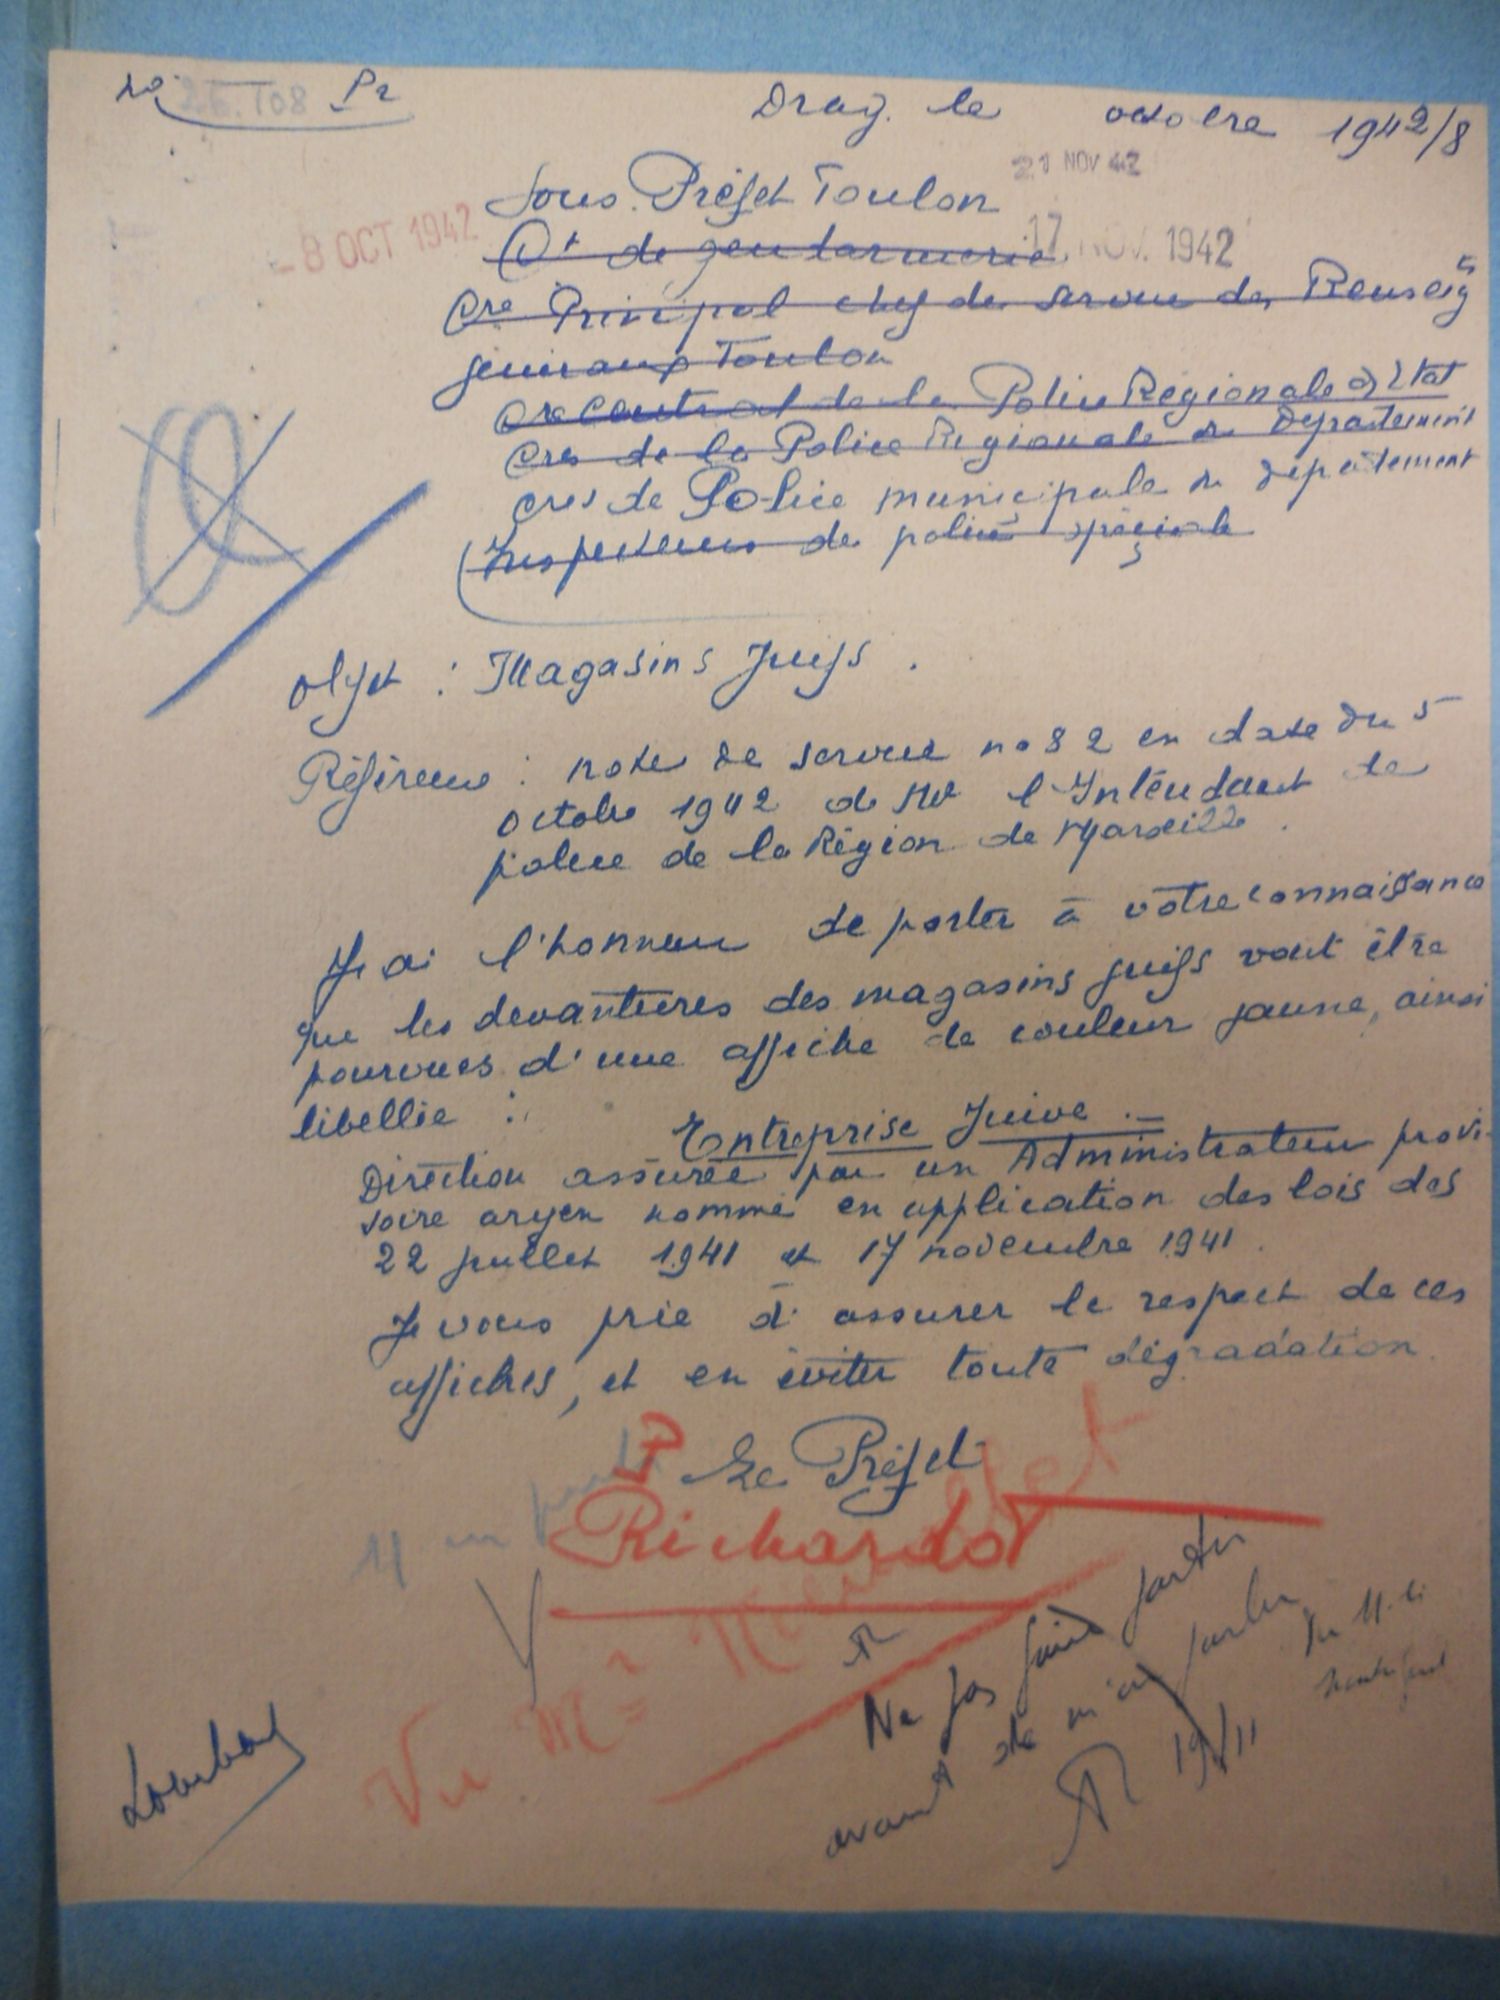 No 26.108 Pr
Drag. le octobre 1942/8
21 NOV 42
Sous-Préfet Toulon
- 8 OCT 1942
17 NOV. 1942
Ct de gendarmerie
Cre Principal chef du service des Renseigts
généraux Toulon
Cre Central de la Police Régionale d'Etat
Cres de la Police Régionale du Département
Cres de Police municipale du département
Inspecteurs de police spéciale
Objet : Magasins Juifs.
Référence : note de service no 82 en date du 5
octobre 1942 de Mr l'Intendant de
police de la Région de Marseille.
J'ai l'honneur de porter à votre connaissance
que les devantures des magasins juifs vont être
pourvues d'une affiche de couleur jaune, ainsi
libellée :
Entreprise Juive.-
Direction assurée par un Administrateur provi-
soire aryen nommé en application des lois des
22 juillet 1941 et 17 novembre 1941.
Je vous prie d'assurer le respect de ces
affiches, et en éviter toute dégradation.
P Le Préfet
Richardot
Ne pas faire partir
avant de m'en parler
19/11
Vu M=